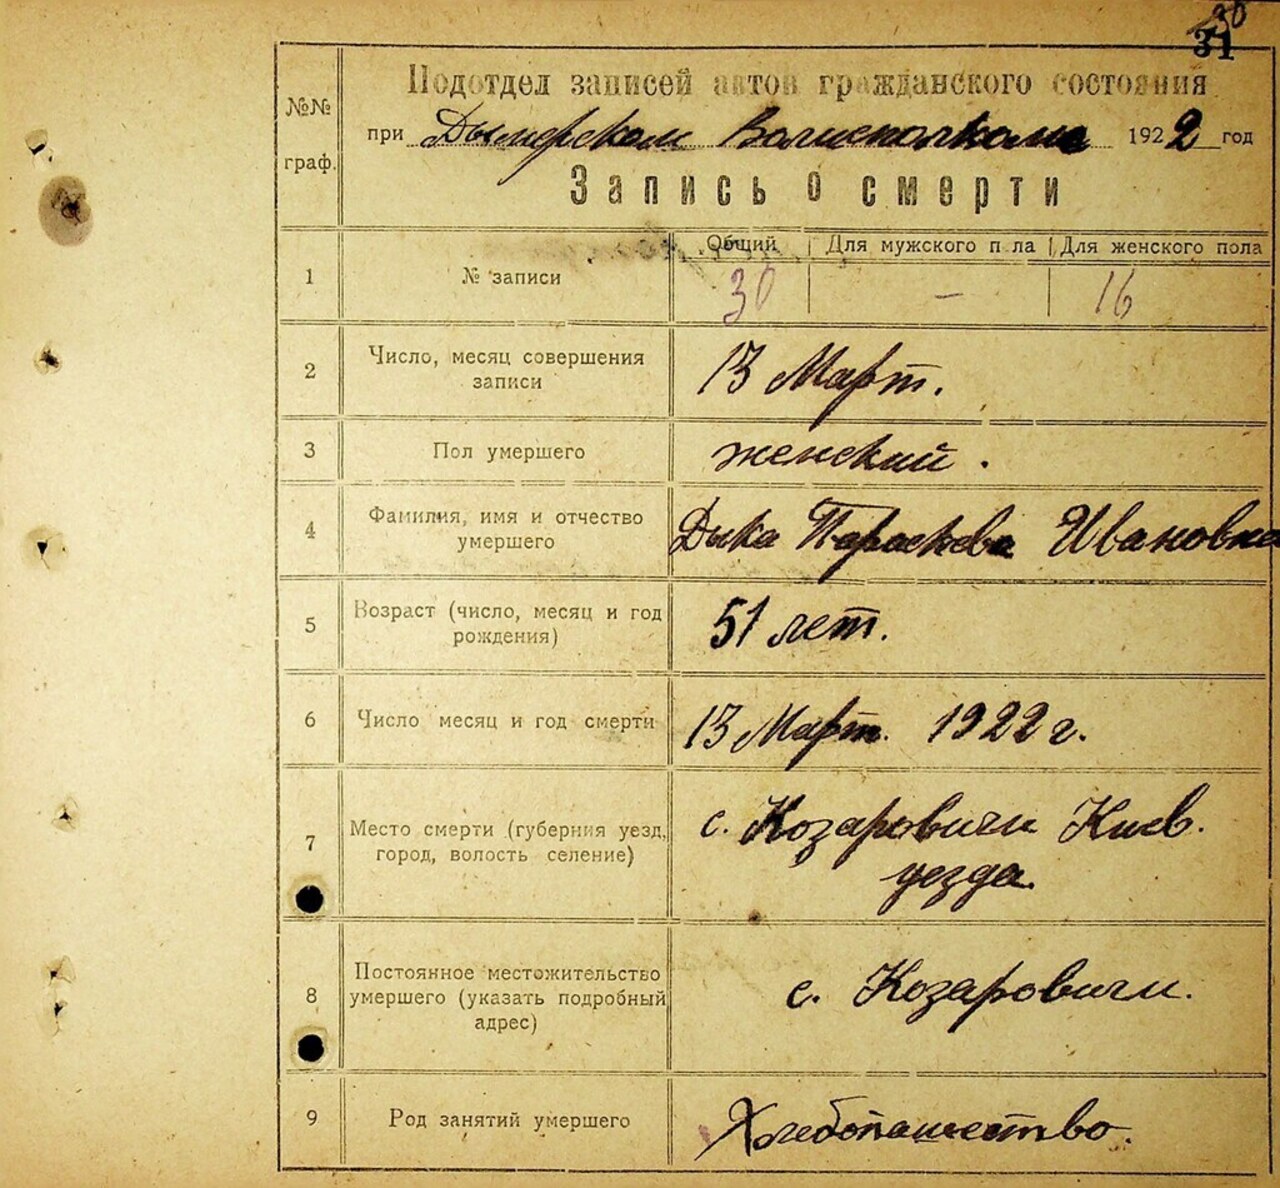 30
31
№№ граф.
Подотдел записей актов гражданского состояния
при Дымерском Волисполкоме 1922 год
Запись о смерти
Общий Для мужского п ла Для женского пола
1 № записи 30 — 16
2 Число, месяц совершения записи 13 Март.
3 Пол умершего женский.
4 Фамилия, имя и отчество умершего Дыка Параскева Ивановна
5 Возраст (число, месяц и год рождения) 51 лет.
6 Число месяц и год смерти 13 Март. 1922 г.
7 Место смерти (губерния уезд, город, волость селение) с. Козаровичи Киев.
уезда.
8 Постоянное местожительство умершего (указать подробный адрес) с. Козаровичи.
9 Род занятий умершего Хлебопашество.